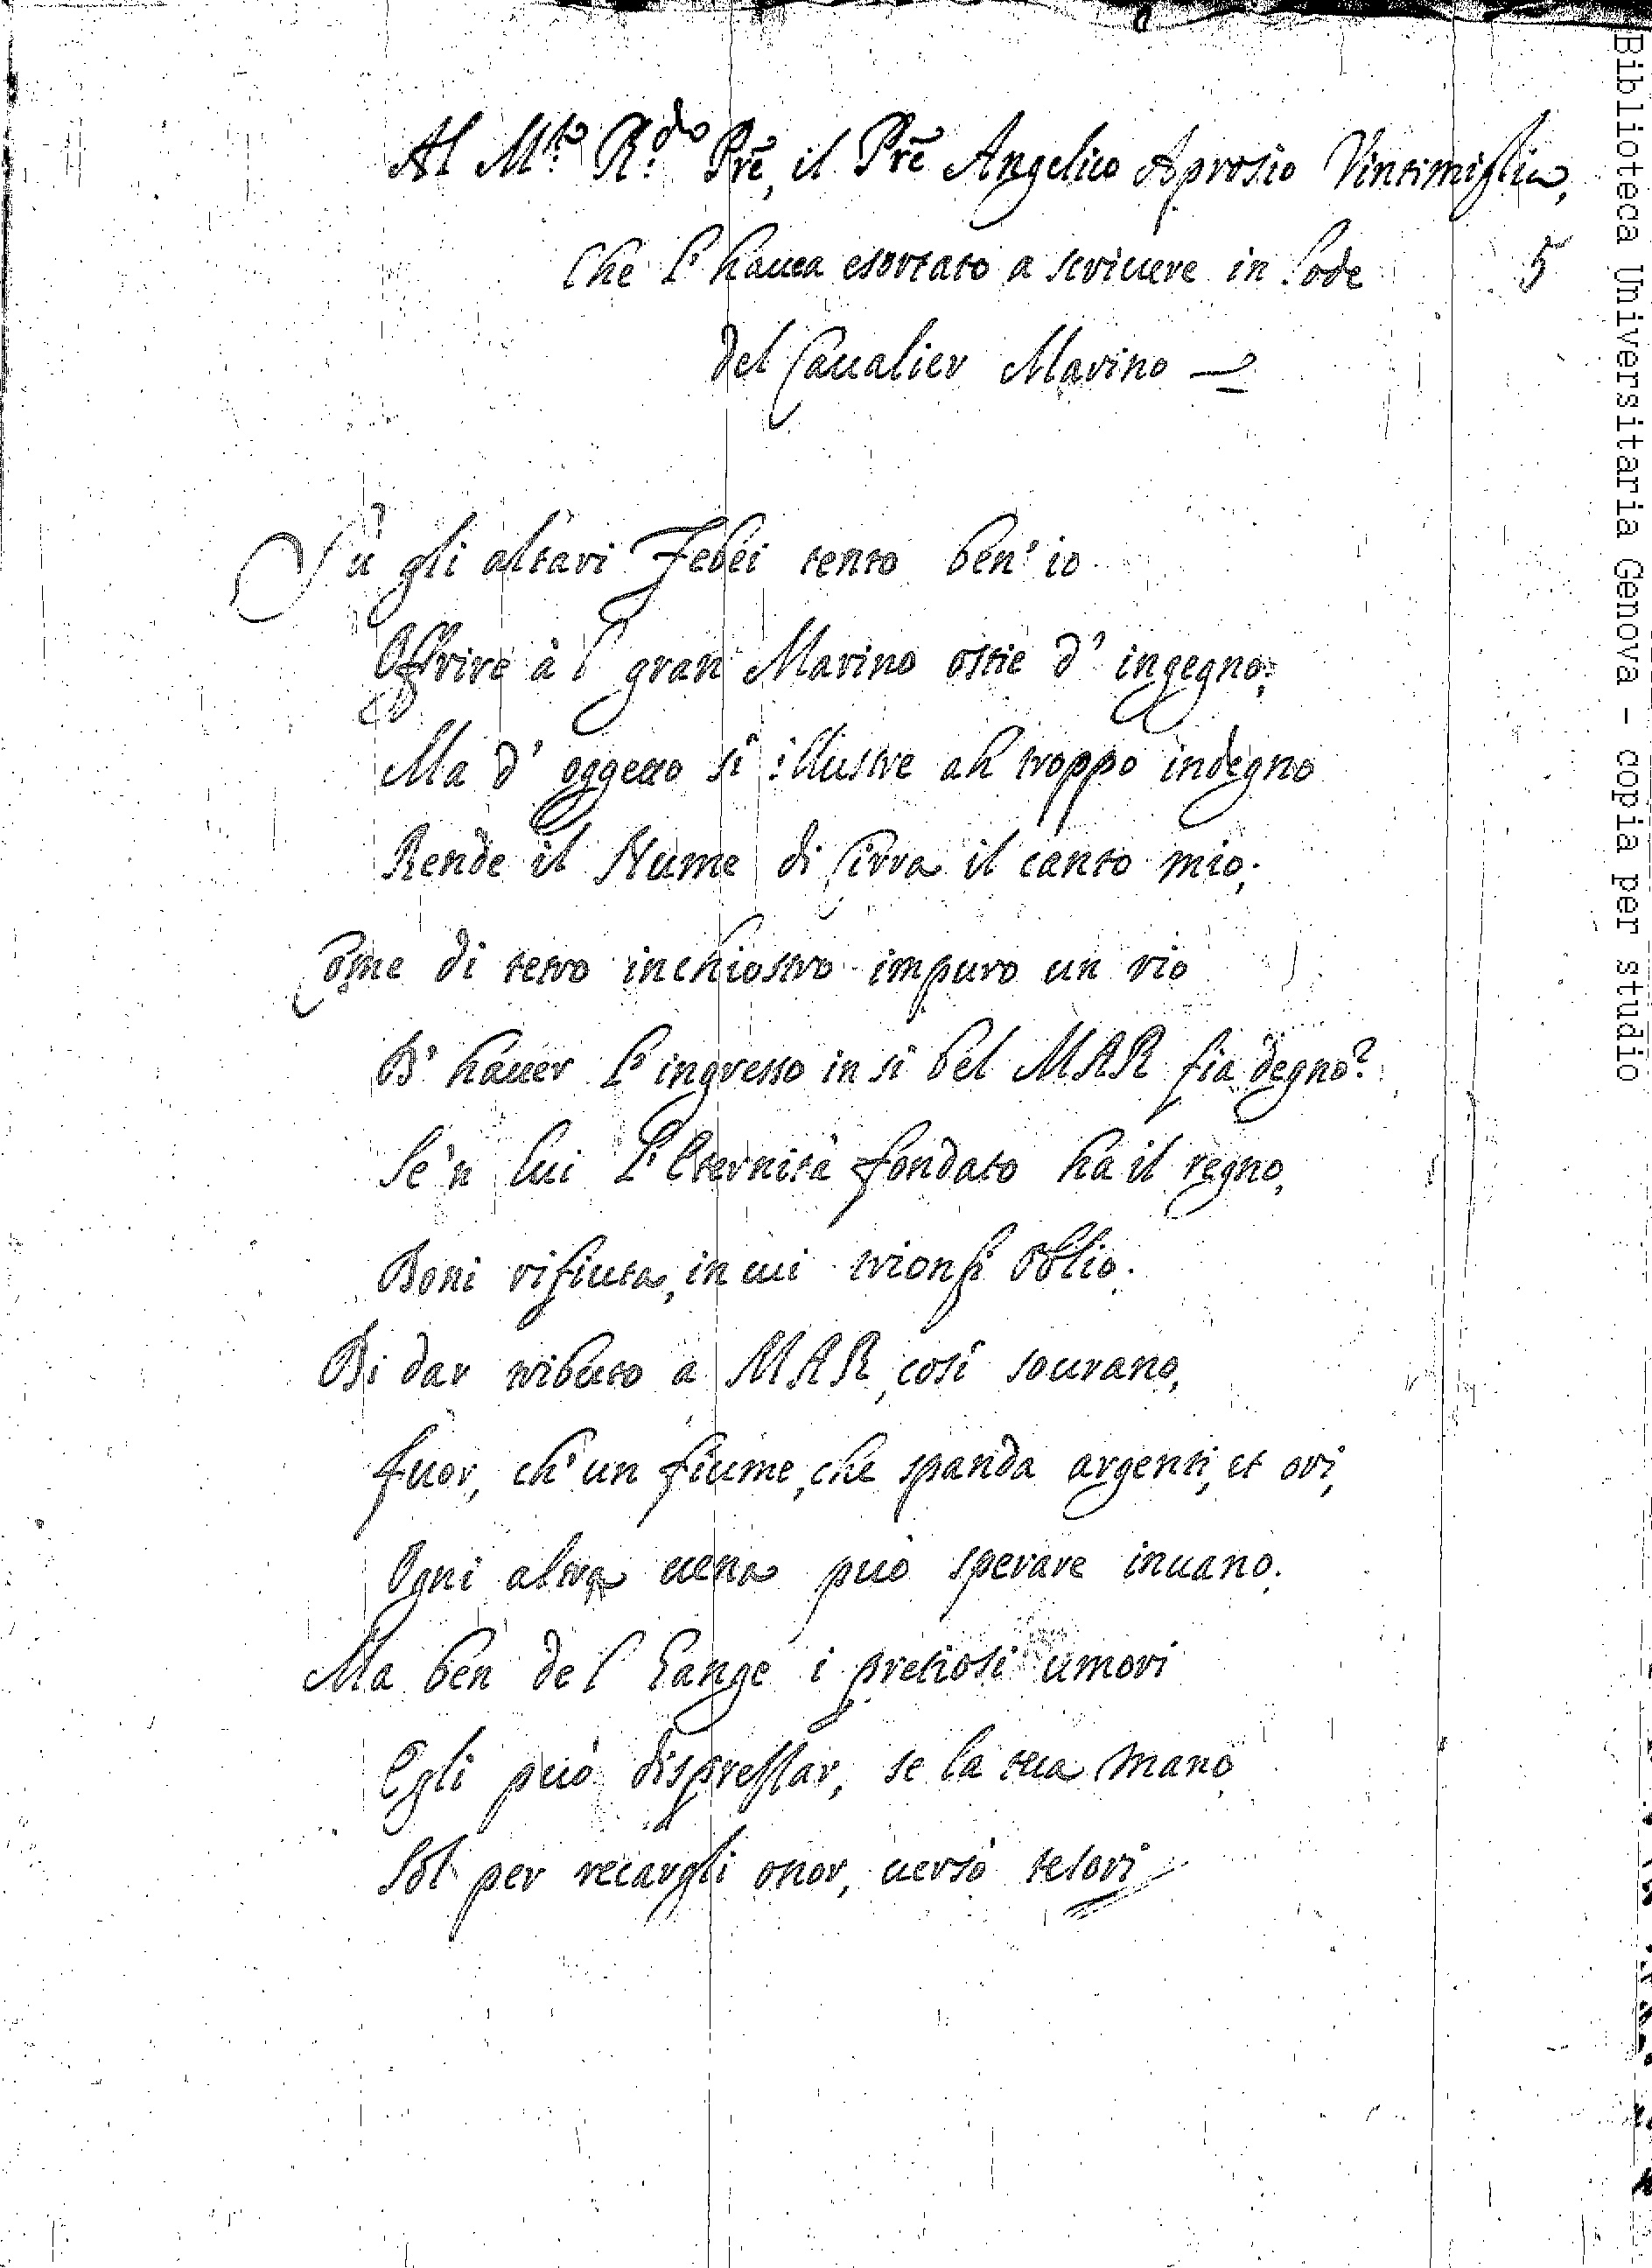 Al M.to R.do Prẽ, il Prẽ Angelico Aprosio Vintimiglia,
Che l'hauea esortato a scriuere in lode
5
del Caualier Marino
Sù gli altari Febei tento ben' io
Offrire à l gran Marino ostie d' ingegno:
Ma d' oggetto sì illustre ah troppo indegno
Rende il Nume di Cirra il canto mio;
Come di tetro inchiostro impuro un rio
D' hauer l' ingresso in sì bel MAR fia degno?
Se 'n lui l' Eternità fondato hà il regno,
Doni rifiuta, in cui trionfi Oblio.
Di dar tributo a MAR, così sourano,
Fuor, ch' un fiume, che spanda argenti, et ori,
Ogni altra uena può sperare inuano.
Ma ben de l Gange i pretiosi umori
Egli può dispressar, se la tua mano
Sol per recargli onor, uersò tesori
Biblioteca Universitaria Genova - copia per studio